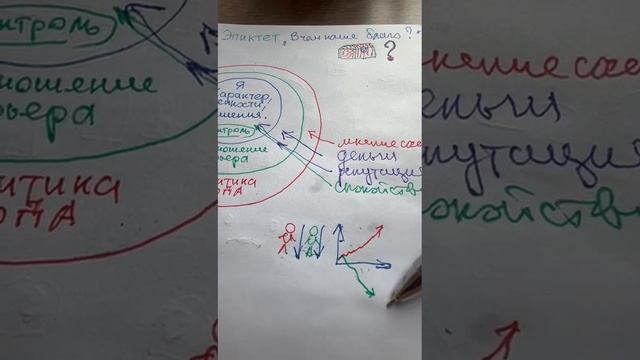 Эпиктет „В чем наше благо?“
?
Я
характер,
енности,
шения.
нтроль
ношение
рьера
итика
ОДА
мнение сосе
деньги
репутация
спокойств
онтроль
ношение
ьера
итика
ОДА
нение сосе
еньги
путация
окойств